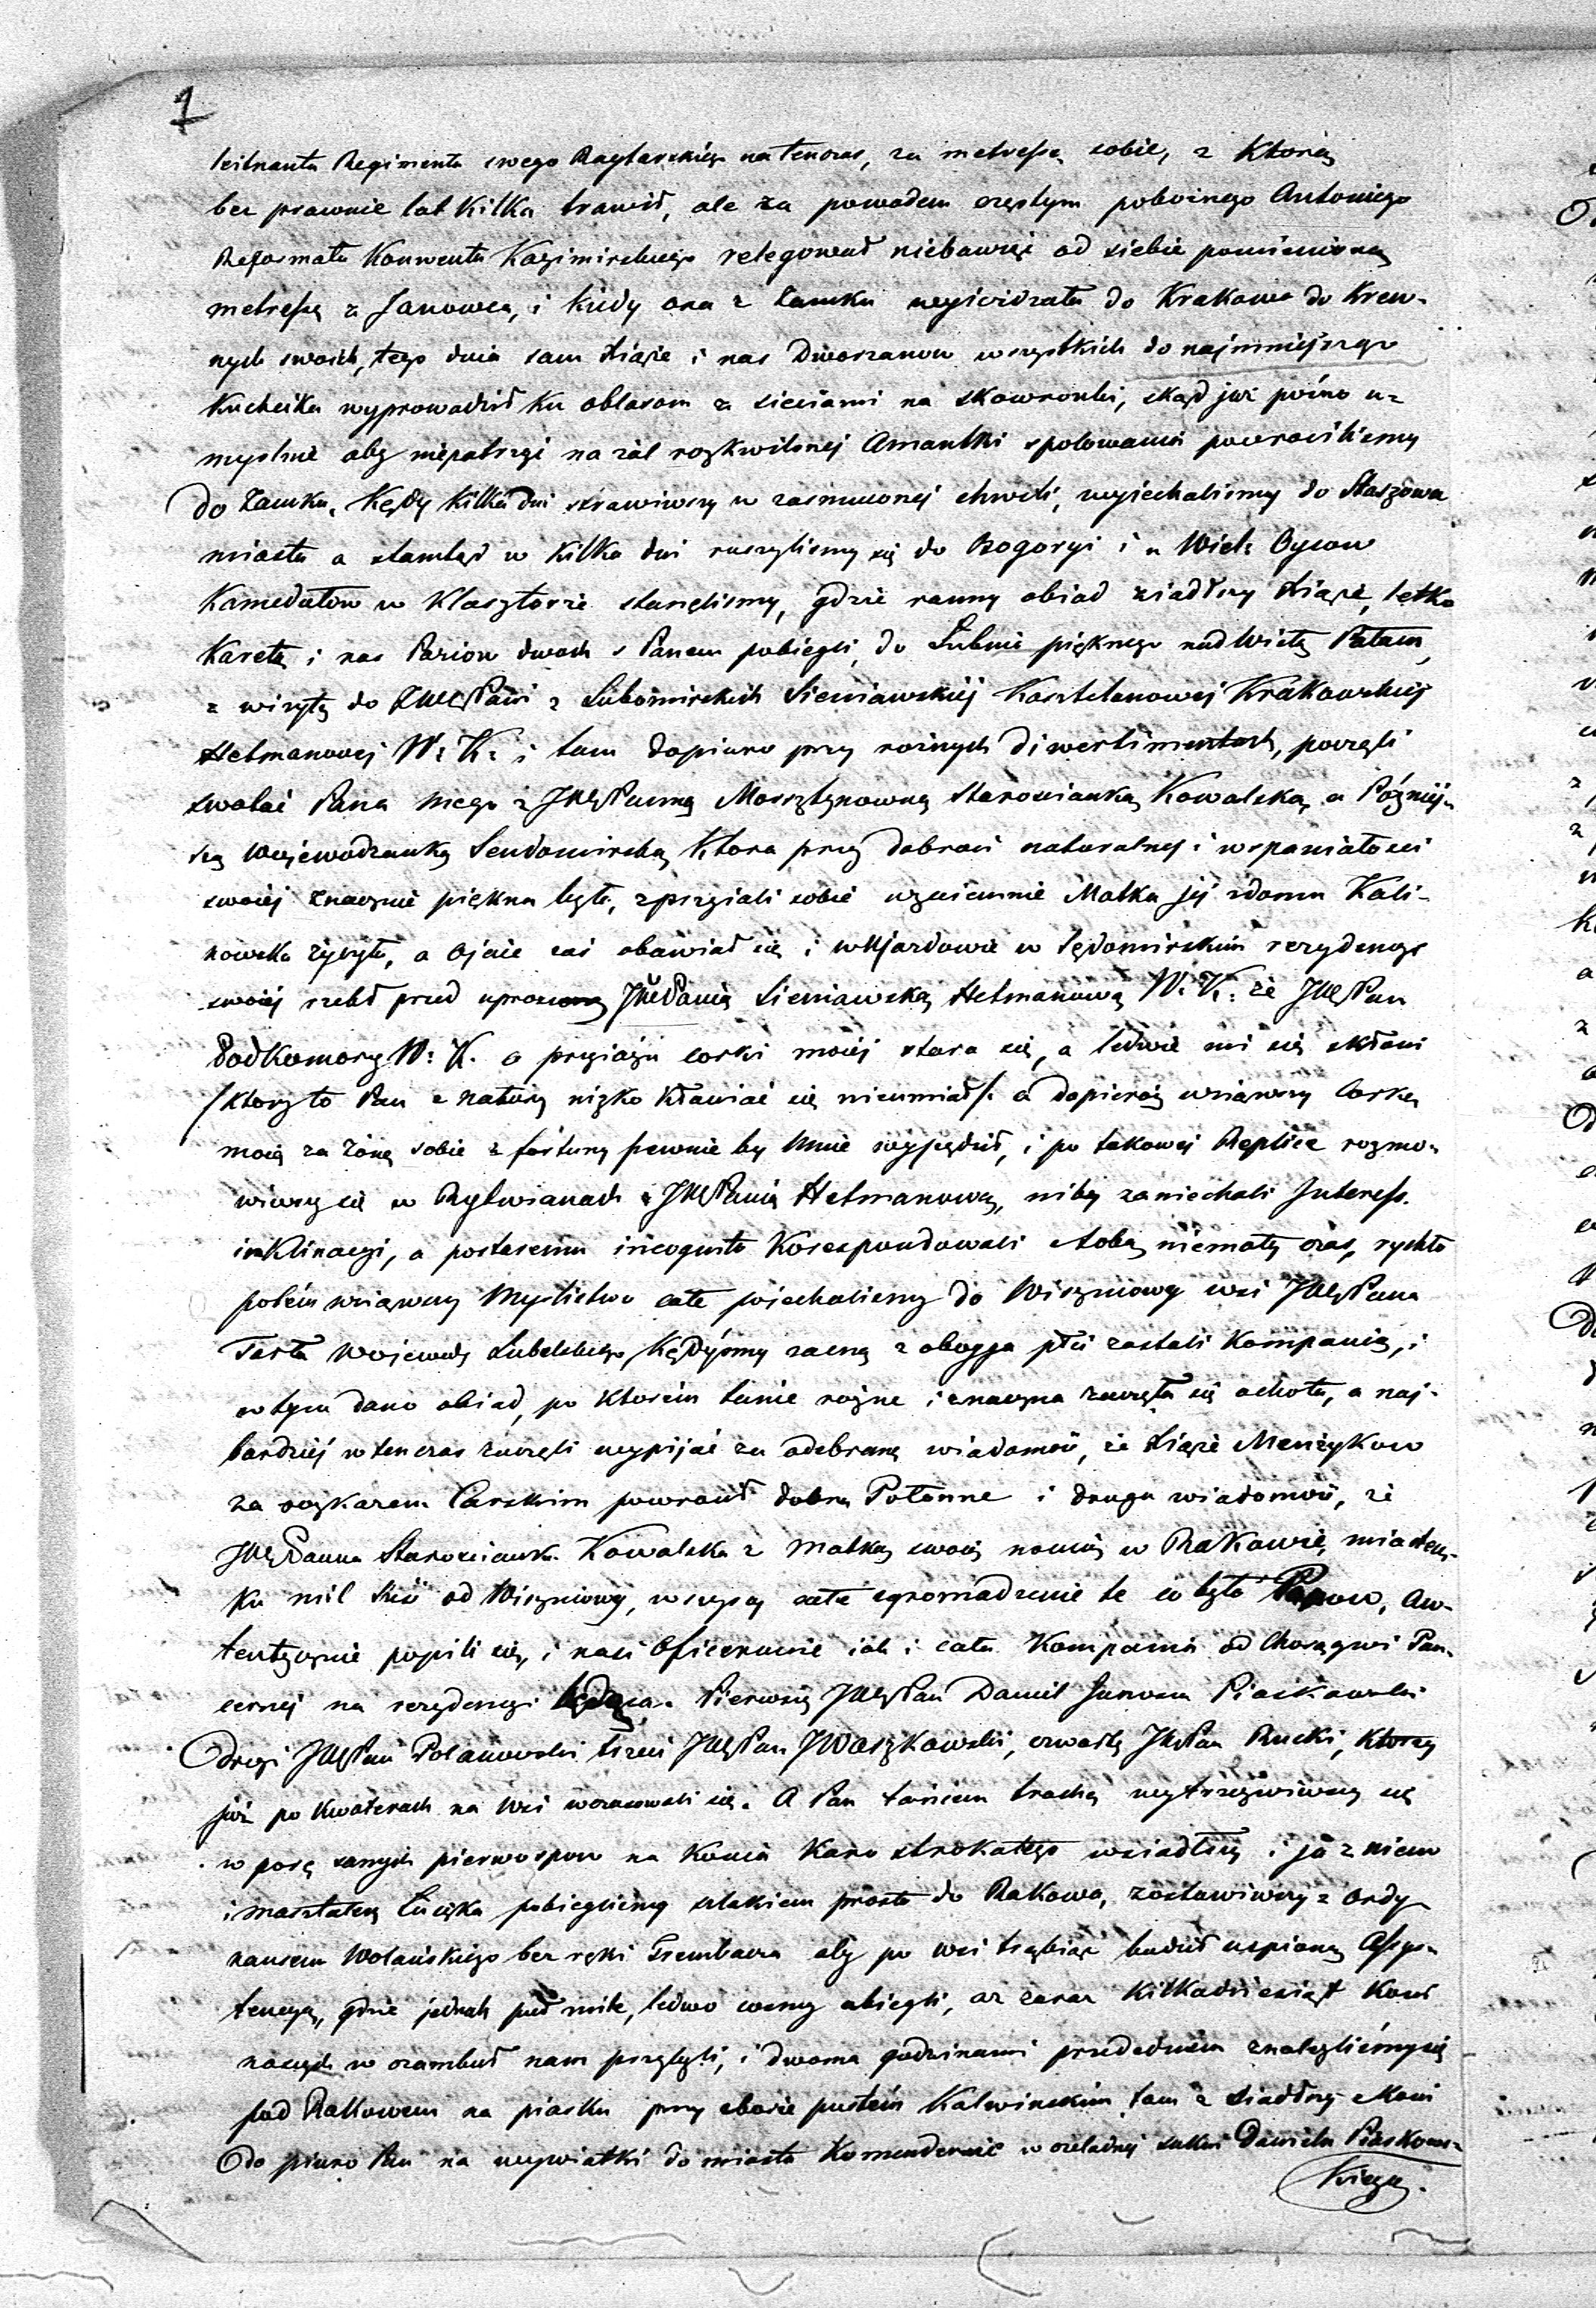 1
leitnanta Regimentu swego Raytarskiego natenczas, za metressę sobie, z Którą
bez prawnie lat Kilka trawił, ale za powodem częstym pobożnego Antoniego
Reformata Konwentu Kazimirskiego relegował niebawiąc od siebie pomienioną
metressę z Janowca, i kiedy ona z Zamku wyieżdzała do Krakowa do Krew-
nych swoich, tego dnia sam Xiąże i nas Dworzanow wszystkich do najmniejszego
Kucheika wyprowadził ku oblasom z sieciami na skowronki, skąd już poźno u=
myslnie aby niepatrzyć na żal rozkwilonej Amantki spolowania powrociliśmy
do Zamku, Kędy Kilka dni strawiwszy w zasmuconej chwili, wyiechalismy do Staszowa
miasta a stamtąd w Kilka dni ruszylismy się do Bogoryi i u Wiel: Oycow
Kamedułow w Klasztorze stanęlismy, gdzie ranny obiad ziadłszy Xiąże, letko
Karetą i nas Paziow dwoch s Panem pobiegli, do Łubnic pięknego nad Wisłą Pałacu,
z wizytą do JWęPani z Lubomirskich Sieniawskiej Kasztelanowej Krakowskiej
Hetmanowej W: K: i tam dopiuro przy rożnych diwertimentach, poczęli
swatać Pana mego z JWęPanną Morsztynowną Starościanką Kowalską, a Poźniej-
szą Wojewodzanką Sendomirską Ktora przy dobroci naturalnej i wspaniałosci
swoiej znacznie piękna była, sprzyiali sobie wzaiemnie Matka jej zdomu Kali-
nowska życzyła, a Ojciec zaś obawiał się i w Ujazdowie w Sędomirskim rezydencyi
swoiej rzekł przed uproszoną JWęPanią Sieniawską Hetmanową W: K: że JWęPan
Podkomorzy W: K. o przyiaźń corki moiej stara się, a ledwie mi się skłoni
/Ktory to Pan z natury nizko kłaniać się nieumiał/: a dopieroż wziąwszy Corkę
moią za Żonę sobie z fortuny pewnie by mnie wypędził, i po takowej Replice rozmo-
wiwszy się w Rytwianach z JWęPanią Hetmanową, niby zaniechali Interess.
inklinacyi, a postaremu incognito Korespondowali stobą niemały czas, rychło
potém wziąwszy Myslistwo całe poiechalismy do Wiszniowy wsi JWęPana
Tarła Wojewody Lubelskiego, Kędyśmy zacną z oboyga płci zastali Kompanią, i
wtym dano obiad, po Ktorem tańce rożne i znaczna zaczęła się ochota, a naj-
bardziej w ten czas zaczęli wypijać za odebraną wiadomość, że Xiąże Menżykow
za rozkazem Carskim powrocił dobra Połonne i druga wiadomość, że
JWęPanna Starościank. Kowalska z Matką swoią nocuią w Rakowie, miastecz-
ku mil sześć od Wiszniowy, wszyscy całe zgromadzenie te co było Panow, aw-
tentycznie popili się, i nasi Oficerowie iak i cała Kompania od Chorągwi Pan-
cernej na rezydencyi będąca. Pierwszy JWęPan Daniel Junosza Piaskowski
drugi JWęPan Polanowski, trzeci JWęPan Iwaszkowski, czwarty JWęPan Rucki, Ktorzy
już po Kwaterach na Wsi wczasowali się. A Pan tańcem trochę wytrzeźwiwszy się
w porę samych pierwospow na Konia Karo strokatego wsiadłszy i ja z niem
i masztalerz Łucyka pobieglismy szlakiem prosto do Rakowa, zostawiwszy z ordy
nansem Wolańskiego bez ręki Trembacza aby po Wsi trąbiąc budził uspioną Assys-
tencyą, gdzie jednak puł mile, ledwo cosmy ubiegli, aż zaraz Kilkadziesiąt Koni
naszych w czambuł nam przybyli, i dwoma godzinami przededniem znależliśmy się
pod Rakowem na piasku przy zborze pustém Kalwinskim, tam z siadłszy z Koni
do piuro Pan na wywiadki do miasta Komenderuie w czeladnej sukni Daniela Piaskows-
Kiego.